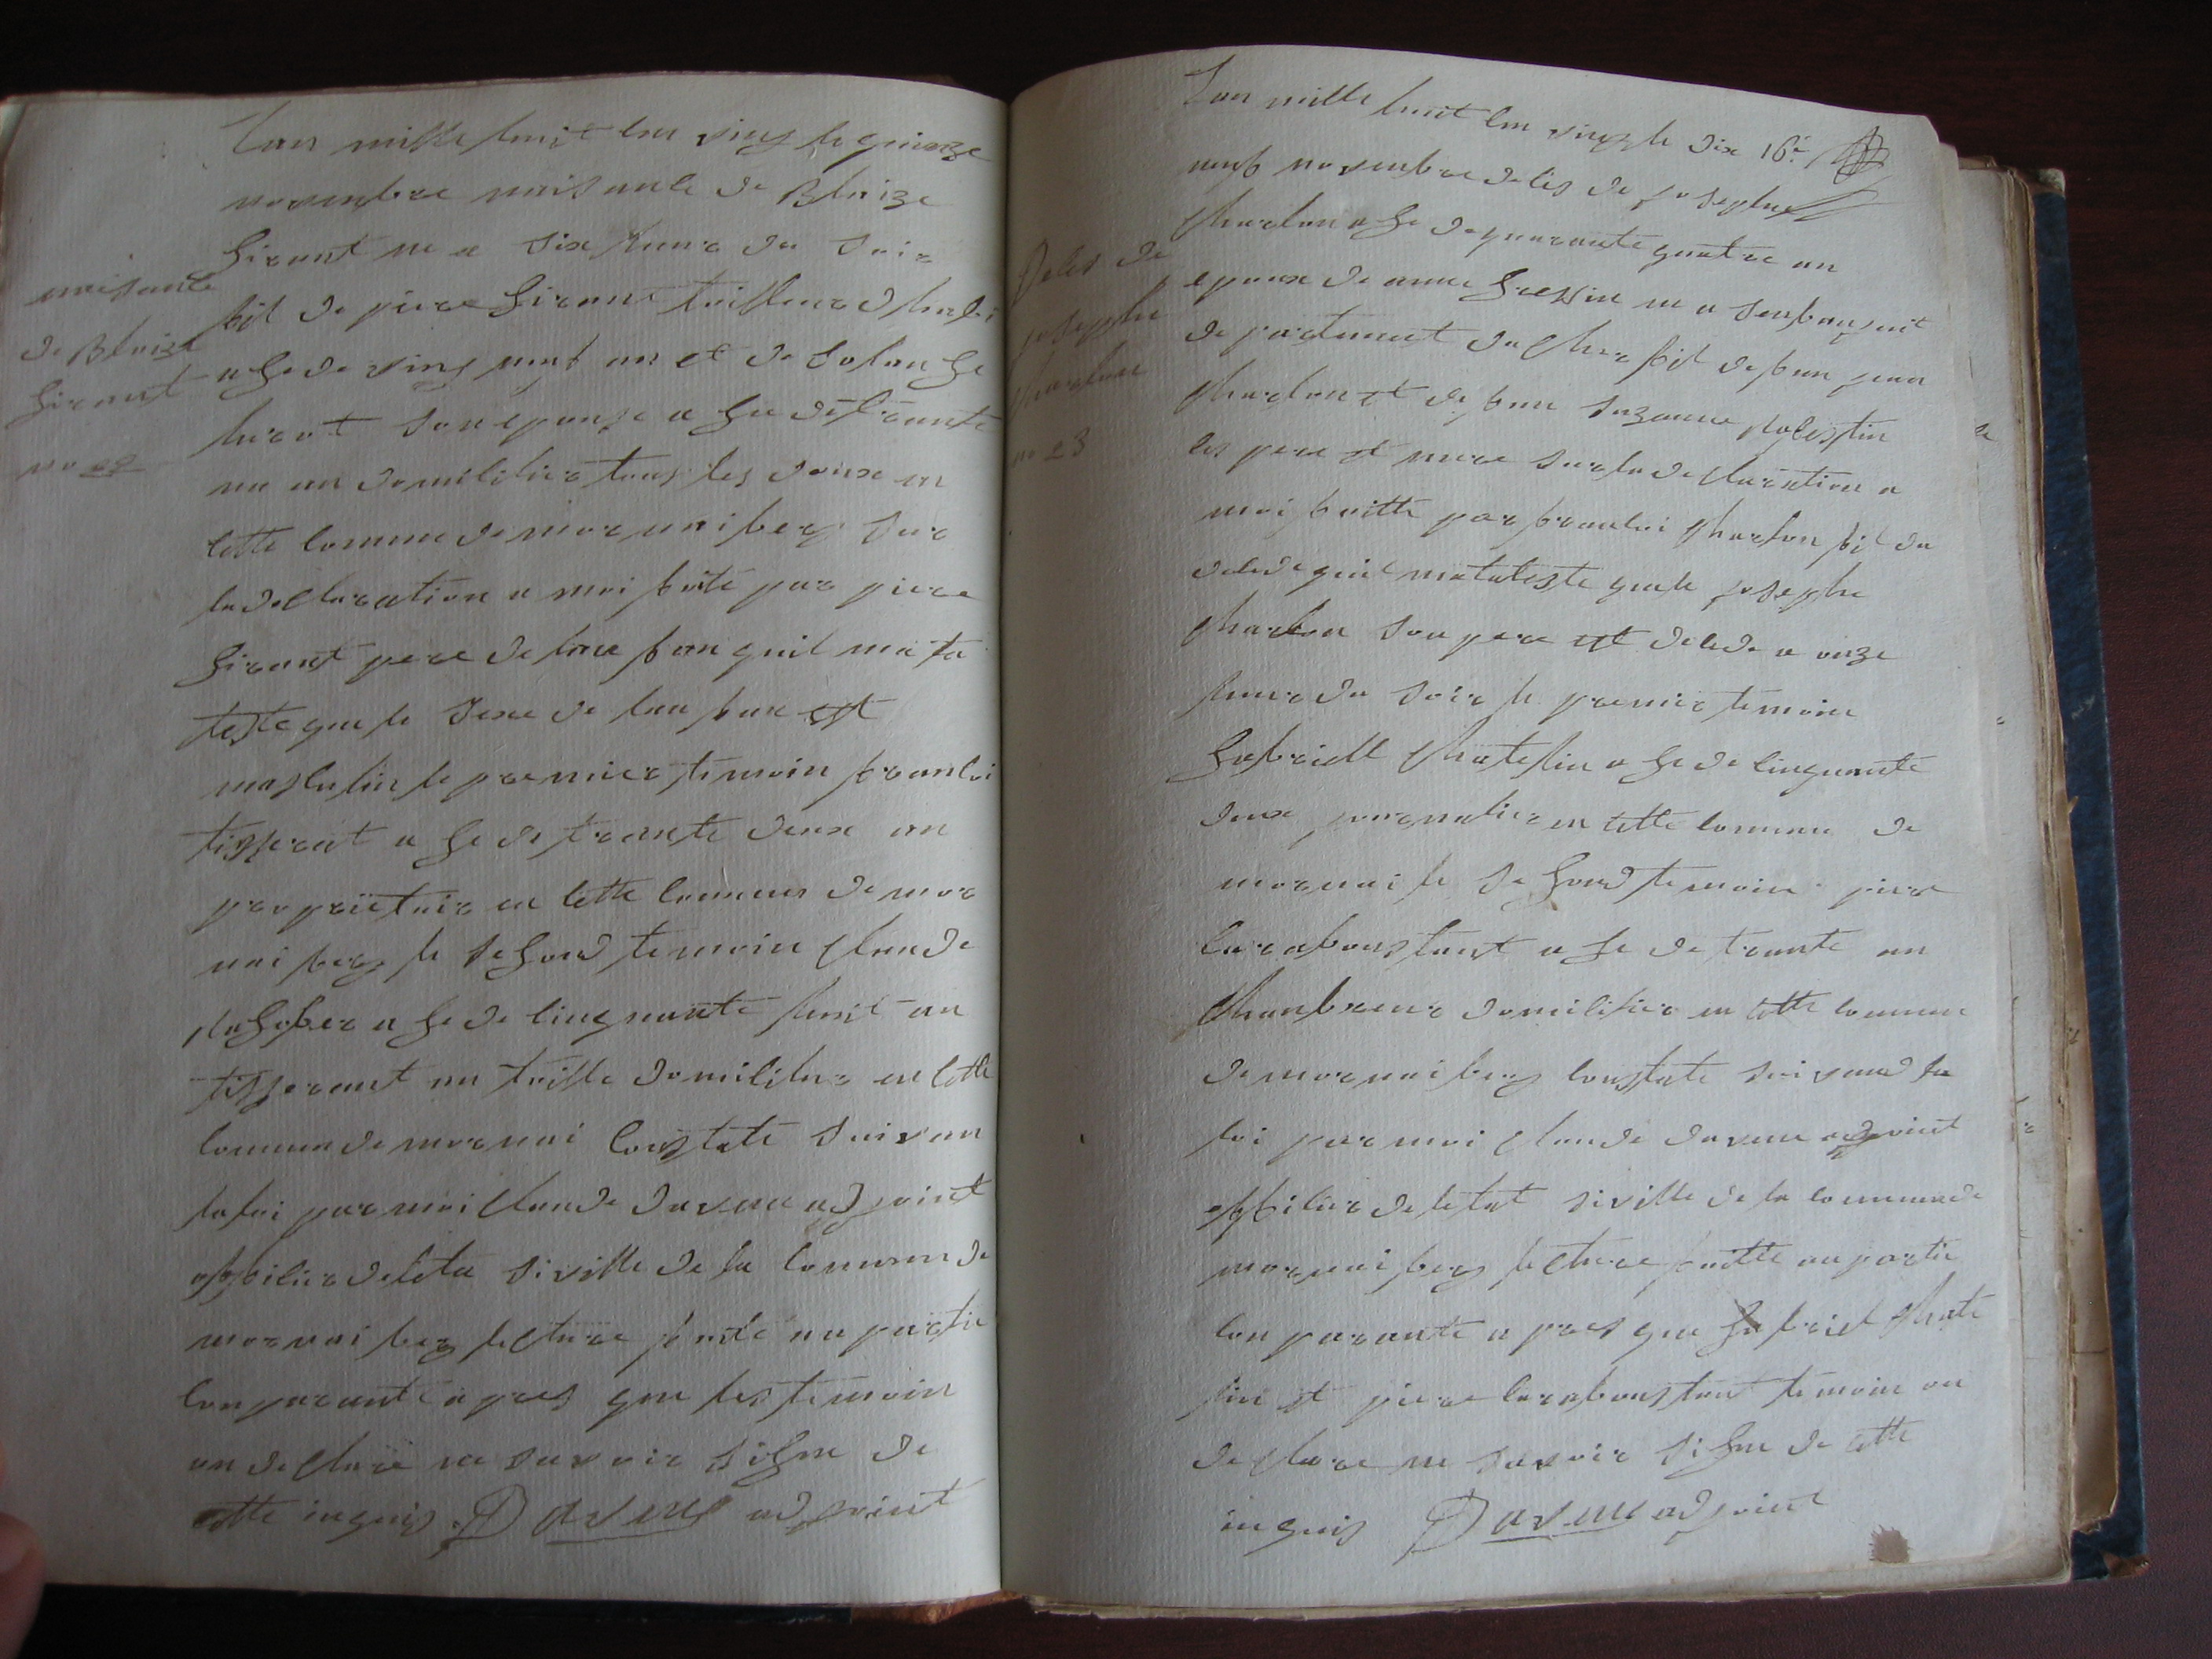 naisance
de Blaize
Girant
no 22
Lan mille huit cen vingt le quinze
novembre naisance de Blaize
Girant ne a six heure du soir
fil de piere Girant tailleur dhabi
age de vingt neuf an et de Solange
son epouse age de trante
un an domicilier tous les deux en
cette commune de mornai berg sur
la declaration a moi faite par piere
Girant pere de lanfan quil mata
teste que le sexe de lanfan est
masculin le premier temoin francoi
tisserant age de trante deux an
proprietair en cette commune de mor
nai berg le segond temoin claude
age de cinquante huit an
tisserant en toille domicilier en cette
commun de mornai constate suivan
la loi par moi claude daveau adjoint
officier de leta siville de la commun de
mornai berg lecture faite au partie
conparante apres que les temoin
on declare ne savoir signe de
cette inquis Daveau adjoint
Deces de
josephe
charlon
no 23
Lan mille huit cen vingt le dix 16e
neuf novembre deces de josephe
charlon age de quarante quatre an
epoux de anne ne a
departement du cher fil de feu jean
charlon et de feu Suzanne
ces pere et mere sur la declaration a
moi faitte par francoi charlon fil du
decede quil matateste que le josephe
charlon son pere est decede a onze
heure du soir le premier temoin
Gabriell Chatelin age de cinquante
deux journalier en cette commun de
mornai le segond temoin piere
age de trante an
chanvreur domicilier en cette commun
de mornai berg constate suivand la
loi par moi claude daveau adjoint
officier de letat siville de la commun de
mornai berg lecture faitte au partie
conparante apres que Gabriel chate
lin et piere temoin on
declare ne savoir signe de cette
inquis Daveau adjoint